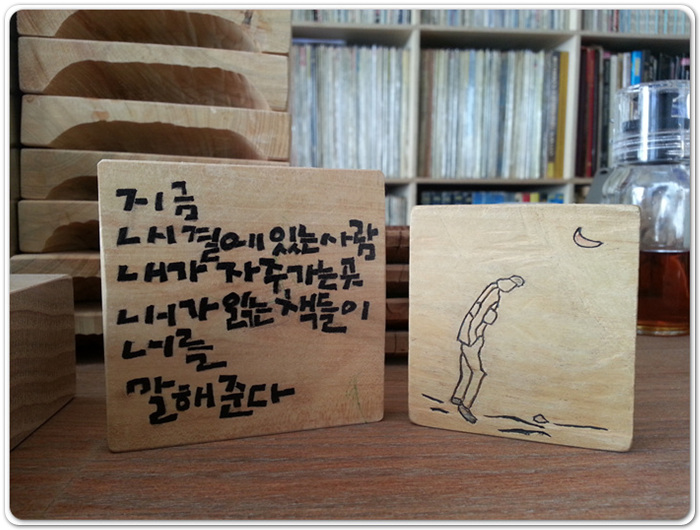 지금
네 곁에 있는 사람
네가 자주 가는 곳
네가 읽는 책들이
너를
말해준다